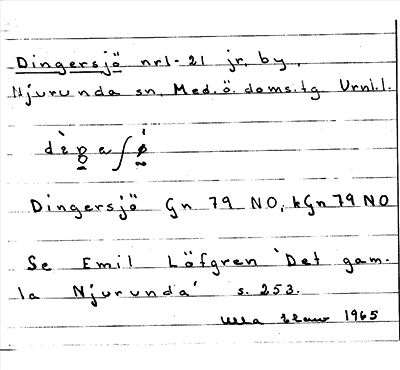 Dingersjö nr 1-21 jr, by,
Njurunda sn, Med.ö. doms.tg Vrni.l.
Dingersjö Gn 79 NO, kGn 79 NO
Se Emil Löfgren "Det gam-
la Njurunda" s. 253.
Ulla 1965